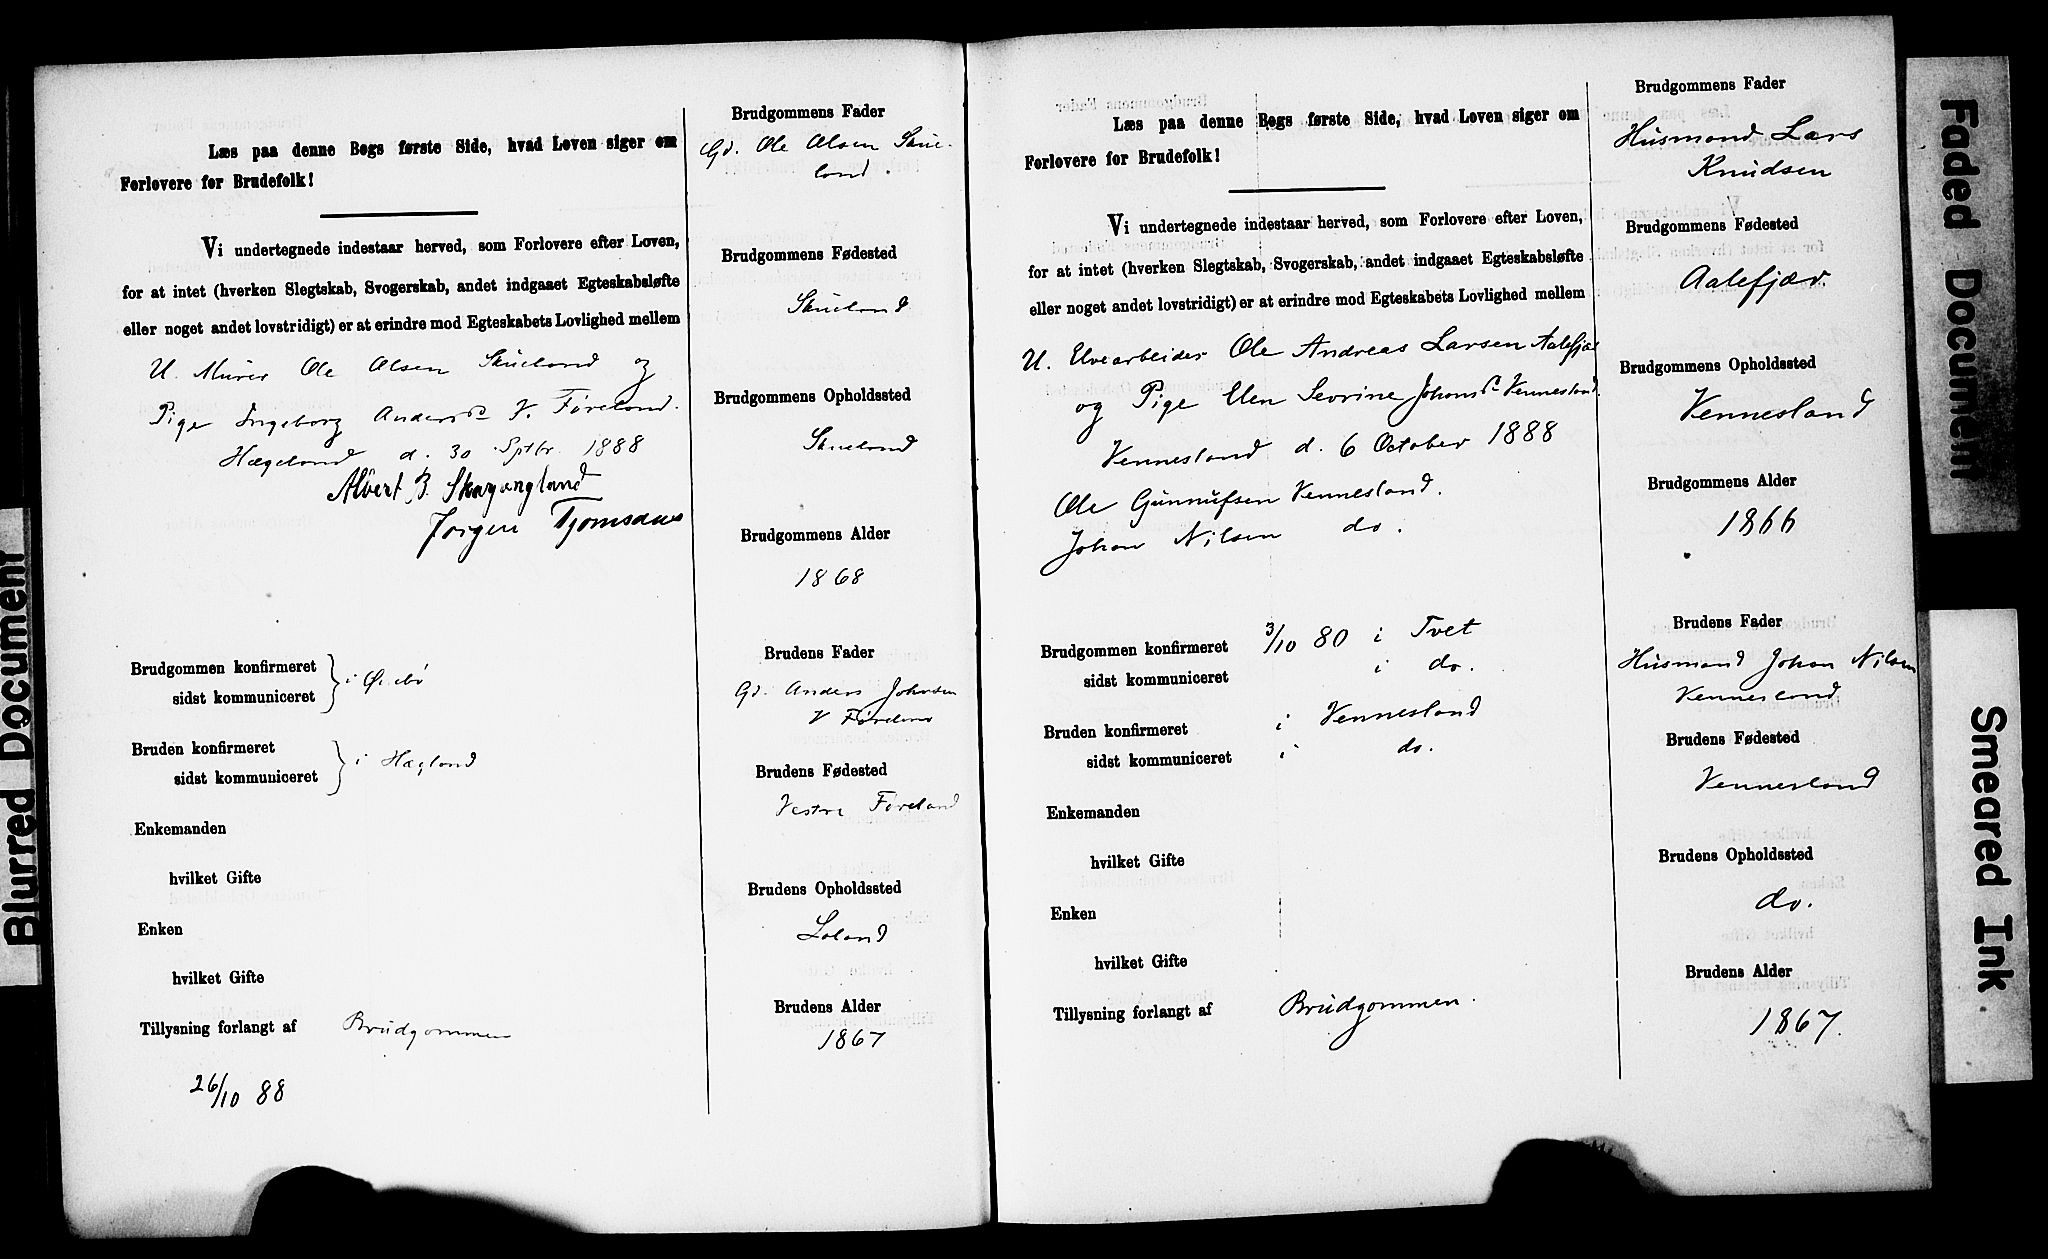 Læs paa denne Bogs første Side, hvad Loven siger om
Forlovere for Brudefolk!
Vi undertegnede indestaar herved, som Forlovere efter Loven,
for at intet (hverken Slegtskab, Svogerskab, andet indgaaet Egteskabsløfte
eller noget andet lovstridigt) er at erindre mod Egteskabets Lovlighed mellem
U. Murer Ole Olsen Skueland og
Pige Ingeborg Andersd. V. Føreland.
Hægeland d. 30 Sptbr. 1888
Albert B.
Jørgen
Brudgommen konfirmeret
sidst kommuniceret
i Øvrebø
Bruden konfirmeret
sidst kommuniceret
i Hægland
Enkemanden
hvilket Gifte
Enken
hvilket Gifte
Tillysning forlangt af Brudgommen
26/10 88
Brudgommens Fader
Gd. Ole Olsen Skue-
land.
Brudgommens Fødested
Skueland
Brudgommens Opholdssted
Skueland
Brudgommens Alder
1868
Brudens Fader
Gd. Anders Johnsen
V Føreland
Brudens Fødested
Vestre Føreland
Brudens Opholdssted
Loland
Brudens Alder
1867
Læs paa denne Bogs første Side, hvad Loven siger om
Forlovere for Brudefolk!
Vi undertegnede indestaar herved, som Forlovere efter Loven,
for at intet (hverken Slegtskab, Svogerskab, andet indgaaet Egteskabsløfte
eller noget andet lovstridigt) er at erindre mod Egteskabets Lovlighed mellem
U. Elvearbeider Ole Andreas Larsen Aalefjær
og Pige Elen Sevrine Johansd. Vennesland.
Vennesland d. 6 October 1888
Ole Gunnufsen Vennesland.
Johan Nilsen do.
Brudgommen konfirmeret 3/10 80 i Tvet
sidst kommuniceret i do.
Bruden konfirmeret i Vennesland
sidst kommuniceret i do.
Enkemanden
hvilket Gifte
Enken
hvilket Gifte
Tillysning forlangt af Brudgommen.
Brudgommens Fader
Husmand Lars
Knudsen
Brudgommens Fødested
Aalefjær.
Brudgommens Opholdssted
Vennesland
Brudgommens Alder
1866
Brudens Fader
Husmand Johan Nilsen
Vennesland
Brudens Fødested
Vennesland
Brudens Opholdssted
do.
Brudens Alder
1867.
Blurred Document
Faded Document
Smeared Ink